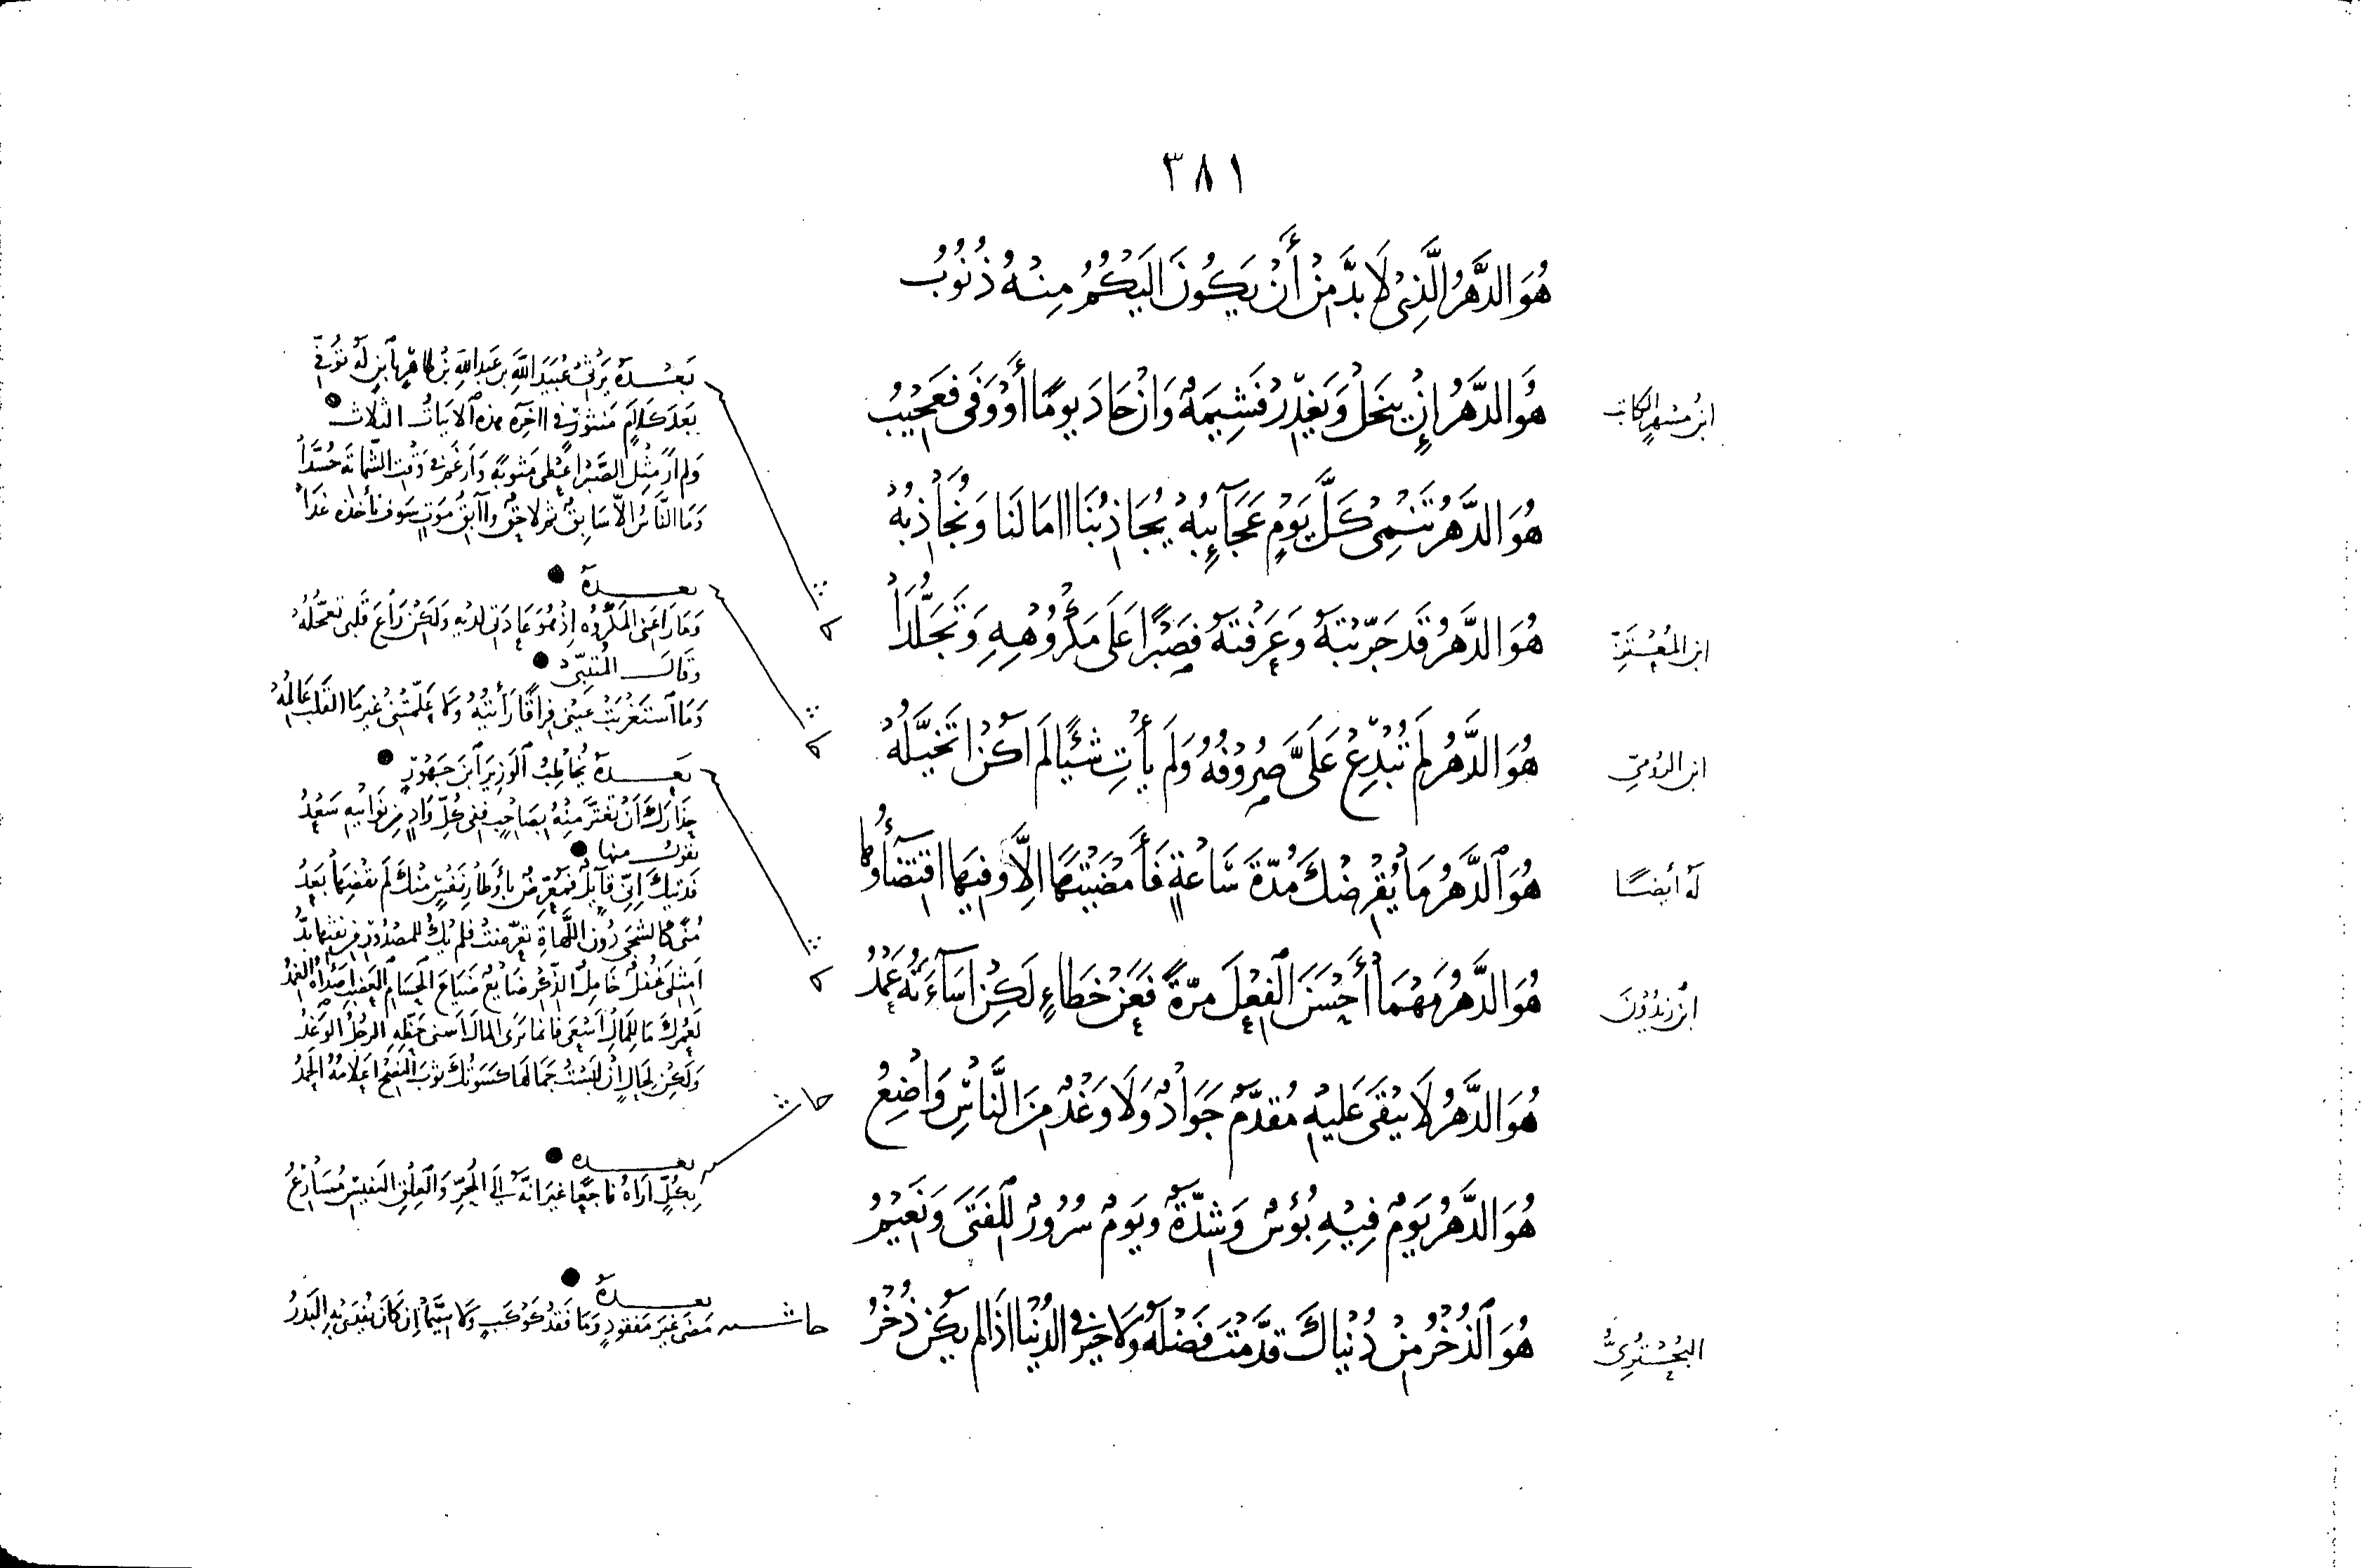 ٣٨١
هُوَ الدَّهْرُ الَّذِي لَا بُدَّ مِنْ أَنْ يَكُونَ اِلَيْكُمُ مِنْهُ ذُنُوبُ
ابن مسهر الكاتب
هُوَ الدَّهْرُ إِنْ يبخَلْ وَيَغْدِرْ فَشِيمَةٌ وَاِنْ جَادَ يومًا أَوْ وَفَى فعَجِيْبُ
هُوَ الدَّهْرُ تَنْمِى كُلَّ يَوْمٍ عَجَآيِبُهْ يُجَاذِبُنَا اٰمَالَنَا وَنُجَاذِبُهْ
ابن المُعْتَزِّ
هُوَ الدَّهْرُ قَد جَرَّبْتَهُ وَعَرَفْتَهُ فصَبْرًا عَلَى مَكْرُوهِهِ وَتَجَلُّدَا
ابن الرُّومِيّ
هُوَ الدَّهْرُ لَم تُبْدِعْ عَلَىَّ صُرُوْفُهُ وَلَم يَأْتِ شَيْئًا لَم اَكُنْ اَتَخَيَّلُهْ
لَهُ أيضًا
هُوَ ٱلدَّهْرُ مَا يُقْرِضْكَ مُدَّةَ سَاعَةٍ فَأَمْضَيْتَهَا اِلَّا وَفِيهَا اقتِضَاؤُهَا
ابن زيدُونَ
هُوَ الدَّهْرُ مَهْمَا أَحْسَنَ الْفِعْلَ مرّةً فَعَنْ خَطَاءٍ لَكِنْ اِسَآءَتُهُ عَمْدُ
هُوَ الدَّهْرُ لَا يَبْقَى عَلَيْهِ مُقدَّمٌ جَوَادٌ وَلَا وَغْدٌ مِنَ النَّاسِ وَاضِعُ
هُوَ الدَّهْرُ يَوْمٌ فِيْهِ بُؤْسٌ وَشِدَّةٌ ويَومٌ سُرُورٌ لِلْفَتَى وَنَعِيْمُ
البُحْتُرِىُّ
هُوَ ٱلذُّخْرُ مِنْ دُنْيَاكَ قَدَّمْتَ فَضْلَهُ وَلَا خَيْرَ فى الدُّنْيَا اذَا لم يَكُنْ ذُخْرُ
بَعْدهُ يَرْثِى عُبَيْدَ اللهِ بنَ عَبدِ اللهِ بْنِ طَاهِرٍ بِٱبنٍ لَهُ تُوُفِّى
بَعْدَ كَلَامٍ مَنْثُورٍ فى اٰخِرِه هذه الاَبيَاتُ الثلاث
وَلم اَرَ مِثْلَ الصَّبْرِ اَعْطَى مَثوبَةً وَاَرغَمَ فى وَقْتِ الشَّمَاتَةِ حُسَّدَا
وَمَا النَّاسُ اِلّا سَابِقٌ ثمّ لَاحِقٌ وَاٰبِقُ مَوْتٍ سَوفَ يأخذه غَدَا
بعدهُ
وَمَا رَاعَنى المَكْرُوهُ اِذْ هُوَ عَادَتى لديهِ وَلَكِنْ رَاعَ قَلبى تعجُّلُهْ
وقَالَ المُتنبّى
وَمَا ٱستَغْرَبَتْ عَيْنى فِرَاقًا رَأَيْتُهُ وَلا عَلَّمَتْنى غَيرَ مَا القَلْبُ عَالِمُهْ
بَعدهُ يُخَاطِبُ ٱلوَزِيرَ ٱبنَ جَهْوَرٍ
حِذَارَكَ اَنْ تَغْتَرَّ مِنْهُ بصَاحِبٍ فَفى كُلِّ وَادٍ مِن نَوَائِبِهِ سَعْدُ
يَقولُ منها
فَديتُكَ اِنِّى قَآيِلٌ فَمُعرِّضٌ بأَوْطَارِ نَفْسٍ مِنْكَ لَم تقضِهَا بَعْدُ
مُنًى كَالشَجَى دُونَ اللَّهَاةِ تعَرَّضَتْ فلم يَكُ للمصْدُورِ مِن نفثِهَا بُدُّ
اَمِثْلى غُفْلٌ خَامِلُ الذِّكْرِ ضَايِعٌ ضَيَاعَ الحُسَامِ العَضْبِ اَصْدَاَهُ الغِمْدُ
لَعَمْرُكَ مَا لِلْمَالِ اَسْعَى فَاِنما يَرَى المَالَ اَسنى حَظِّهِ الرجُلُ الوَغْدُ
وَلكِنْ لِحَالٍ اِنْ لَبِسْتُ جَمَالَهَا كَسَوْتُكَ ثوبَ النُّصْحِ اَعْلَامُهُ الحَمْدُ
حاش
بعده
بِكُلٍّ اَرَاهُ فَاجِعًا غَيْرَ اَنَّهُ اِلَى الحُرِّ وَالعِلْقِ النَفيسِ مُسَارِعُ
حاش
بعدهُ
مَضَى غَيْرَ مَفقودٍ وَمَا فَقْدُ كَوْكَبٍ وَلَا سِيَّمَا اِنْ كَانَ يُفْدَى بِهِ البَدْرُ